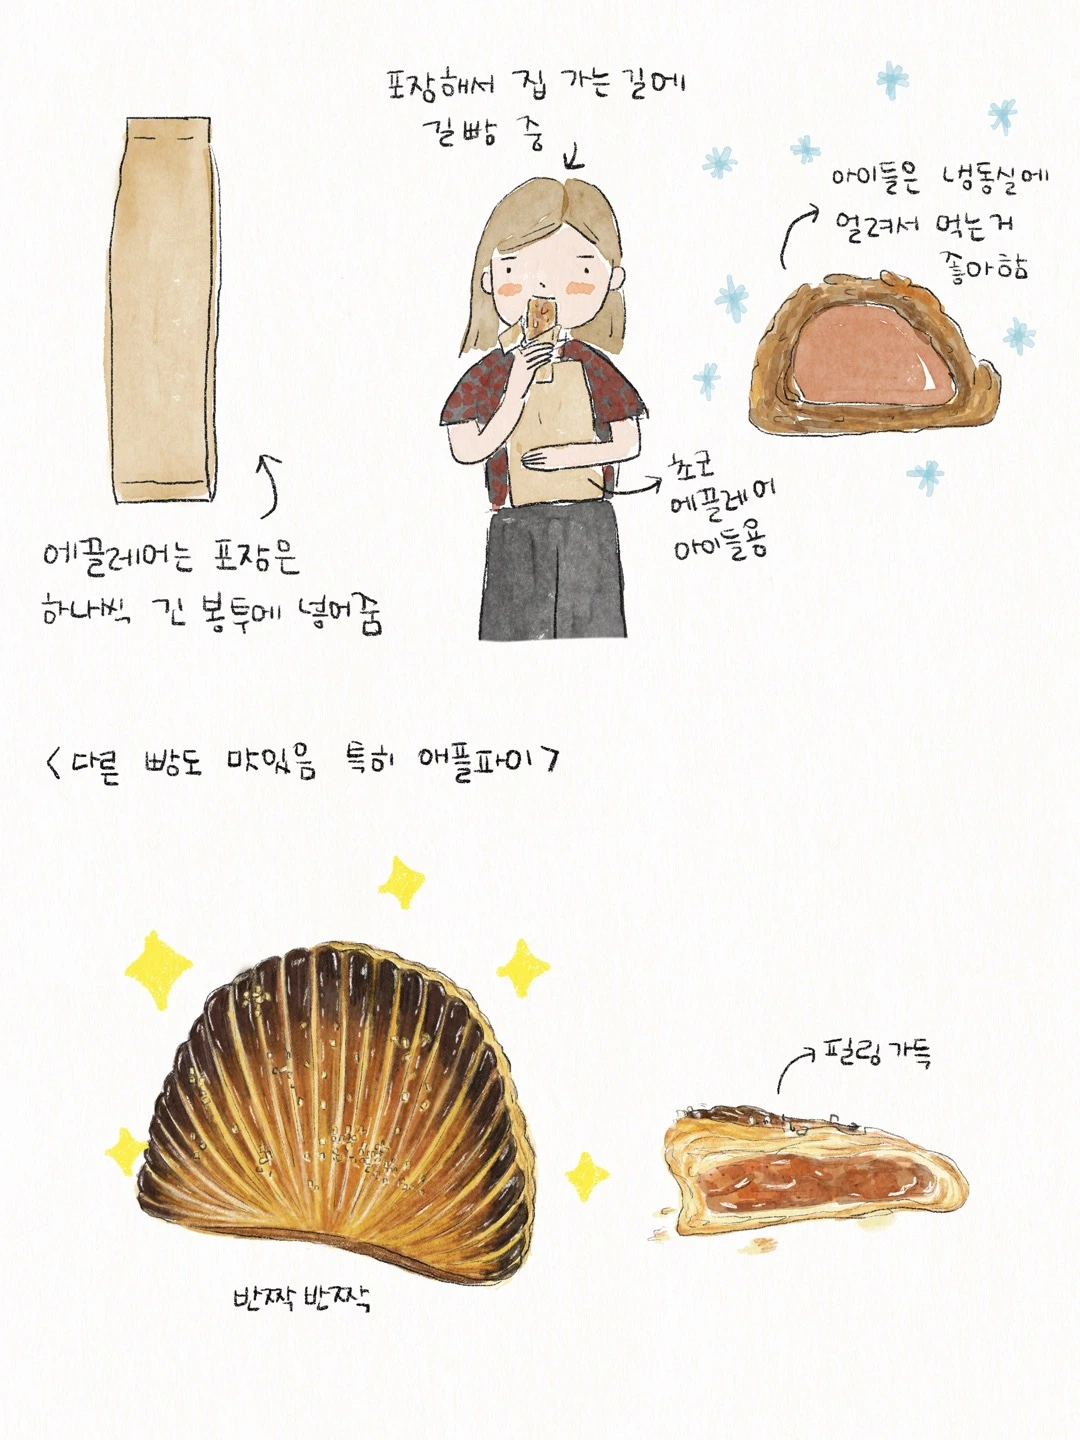 포장해서 집 가는 길에
길빵 중
아이들은 냉동실에
얼려서 먹는거
좋아함
초코
에끌레어
아이들용
에끌레어는 포장은
하나씩 긴 봉투에 넣어줌
<다른 빵도 맛있음 특히 애플파이>
필링 가득
반짝 반짝